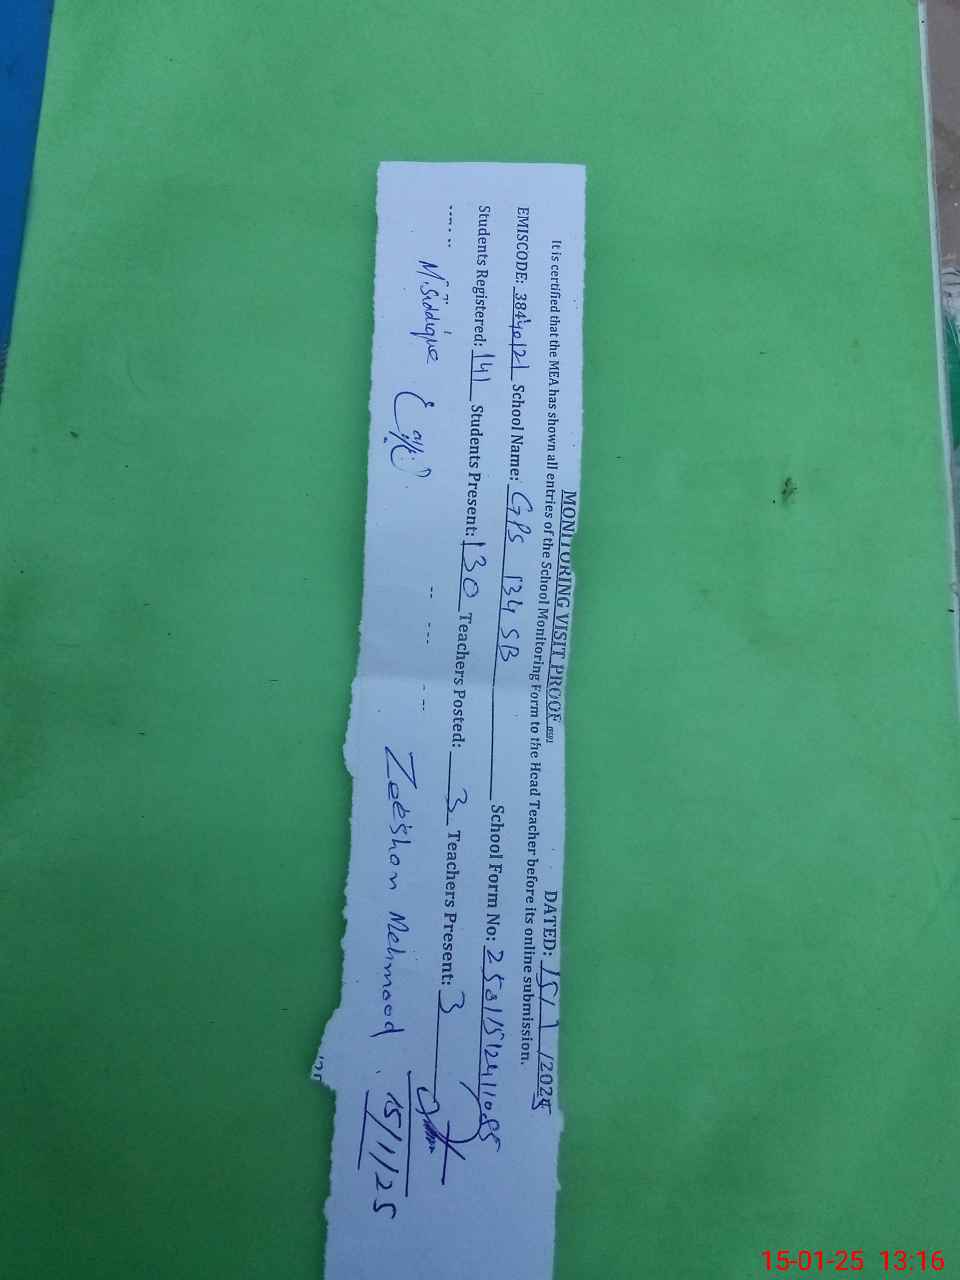 MONITORING VISIT PROOF DATED: 15/1/2025
It is certified that the MEA has shown all entries of the School Monitoring Form to the Head Teacher before its online submission.
EMISCODE: 38440121 School Name: GPS 134 SB School Form No:
Students Registered: 141 Students Present: 130 Teachers Posted: 3 Teachers Present: 3
M. Siddique Zeeshan Mehmood 15/1/25
15-01-25 13:16